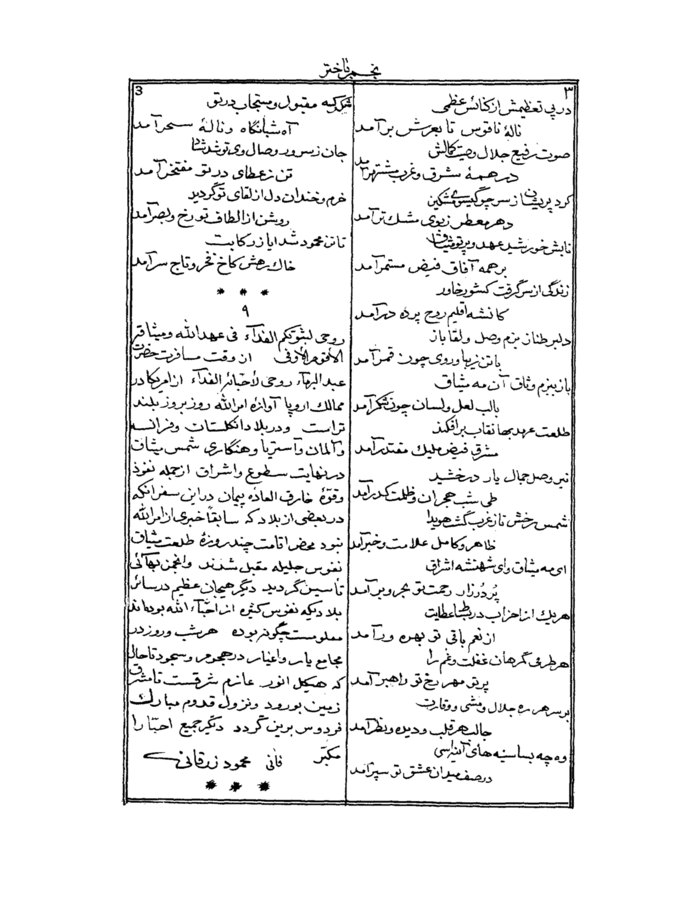 نجم باختر
٣
در پی تعظیمش از کنائس عظمی
نالهٔ ناقوس تا بعرش برآمد
صوت رفیع جلال وصیت کمالش
در همهٔ شرق و غرب مشتهر آمد
کرد پریشان از سر چو گیسوی مشکین
دهر معطر زبوی مشک تر آمد
تابش خورشید عهد و پرتو میثاق
بر همه آفاق فیض مستمر آمد
زندگی از سر گرفت کشور خاور
کانشه اقلیم روح پرده در آمد
دلبر طناز بزم وصل و لقا باز
با تن زیبا و روی چون قمر آمد
باز ببزم وثاق آن مه میثاق
با لب لعل و لسان چون شکر آمد
طلعت عهد بها نقاب برافکند
مشرق فیض ملیک مقتدر آمد
نیر وصل جمال یار درخشید
طی شب هجران و ظلمت کدر آمد
شمس رخش تا ز غرب گشت هویدا
ظاهر و کامل علامت و خبر آمد
ای مه میثاق وای شهنشه اشراق
پر دُرر از رحمت تو بحر و بر آمد
هر یک از احزاب در بساط عطایت
از نعم باقی تو بهره ور آمد
هر طرفی گمرهان غفلت و غم را
پرتو مهر رخ تو راهبر آمد
بر سر هر ره جلال و مشی و وقارت
جالب هر قلب و دیده و نظر آمد
وه چه بسا سینه های
در صف میدان عشق تو سپر آمد
3
شکر که مقبول و مستجاب در تو
آه شبانگاه و نالهٔ سحر آمد
جان ز سرور وصال وی تو شد شاد
تن ز عطای در تو مفتخر آمد
خرم و خندان دل از لقای تو گردید
روشن از الطاف تو رخ و بصر آمد
تا تن محمود شد ایاز رکابت
خاک رهش کاخ فخر و تاج سر آمد
* * *
٩
روحی لثبوتکم الفداء فی عهد الله ومیثاقه
الأقوم الأوفی از وقت مسافرت حضرت
عبد البهاء روحی لأحبائه الفداء از امریکا در
ممالک اروپا آوازهٔ امرالله روز بروز بلند
تر است و در بلاد انکلستان و فرانسه
و آلمان و آستریا و هنگاری شمس میثاق
در نهایت سطوع و اشراق از جمله نفوذ
و قوهٔ خارق العادهٔ پیمان در این سفر آنکه
در بعضی از بلاد که سابقاً خبری از امرالله
نبود محض اقامت چند روزهٔ طلعت میثاق
نفوس جلیله مقبل شدند و انجمن بهائی
تأسیس گردید دیگر هیجان عظیم در سائر
بلاد یکه نفوس کثیره از احبّاء الله بوده اند
معلوم است چگونه بوده هر شب و روز در
مجامع یار و اغیار در هجوم و سجود تا حال
که هیکل انور عازم شرقست تا مشرق
زمین بورود و نزول قدوم مبارک
فردوس برین گردد دیگر جمیع احبّا را
مکبّر فانی محمود زرقانی
* * *